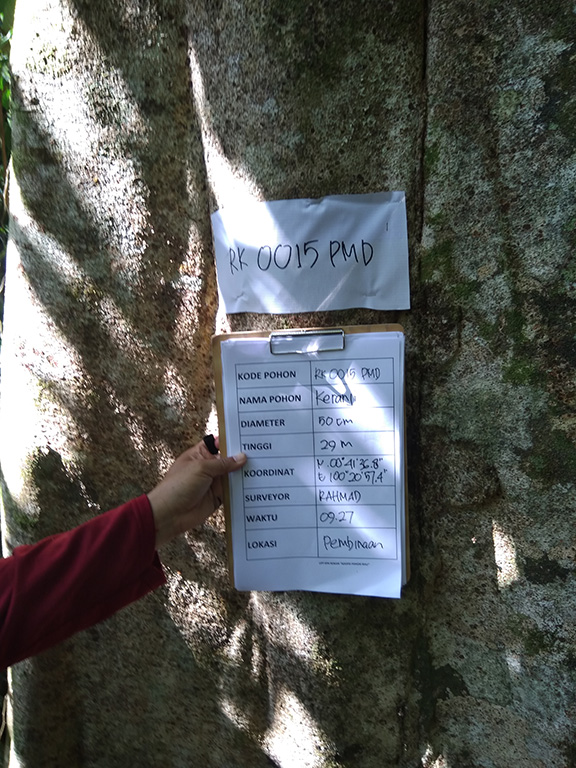 RK 0015 PMD
KODE POHON RK 0015 PMD
NAMA POHON Keranj
DIAMETER 50 cm
TINGGI 29 m
KOORDINAT N. 00°41'36.8"
E 100°20'57.4"
SURVEYOR RAHMAD
WAKTU 09.27
LOKASI Pembinaan